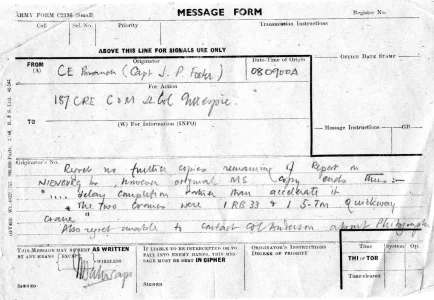 MESSAGE FORM
ARMY FORM C2136 (Small)
Register No.
Call
Ser. No.
Priority
Transmission Instructions
ABOVE THIS LINE FOR SIGNALS USE ONLY
OFFICE DATE STAMP
FROM
(A)
Originator
CE Branch (Capt J. P. Foster)
Date-Time of Origin
080900A
For Action
187 CRE C o M Lt Col Gillespie.
TO
(W) For Information (INFO)
Message Instructions
GR
Originator's No.
Regret no further copies remaining of Report on
NIENBURG br however original MS copy reads thus :-
"... delay completion rather than accelerate it
" The two cranes were 1 RB 33 & 1 5-7m quikway
crane "
Also regret unable to contact Col Anderson about Photographs
THIS MESSAGE MAY BE SENT AS WRITTEN
BY ANY MEANS EXCEPT
WIRELESS
SIGNED
IF LIABLE TO BE INTERCEPTED OR TO
FALL INTO ENEMY HANDS, THIS MES-
SAGE MUST BE SENT IN CIPHER
SIGNED
ORIGINATOR'S INSTRUCTIONS
DEGREE OF PRIORITY
Time
System
Op.
THI or TOR
Time cleared